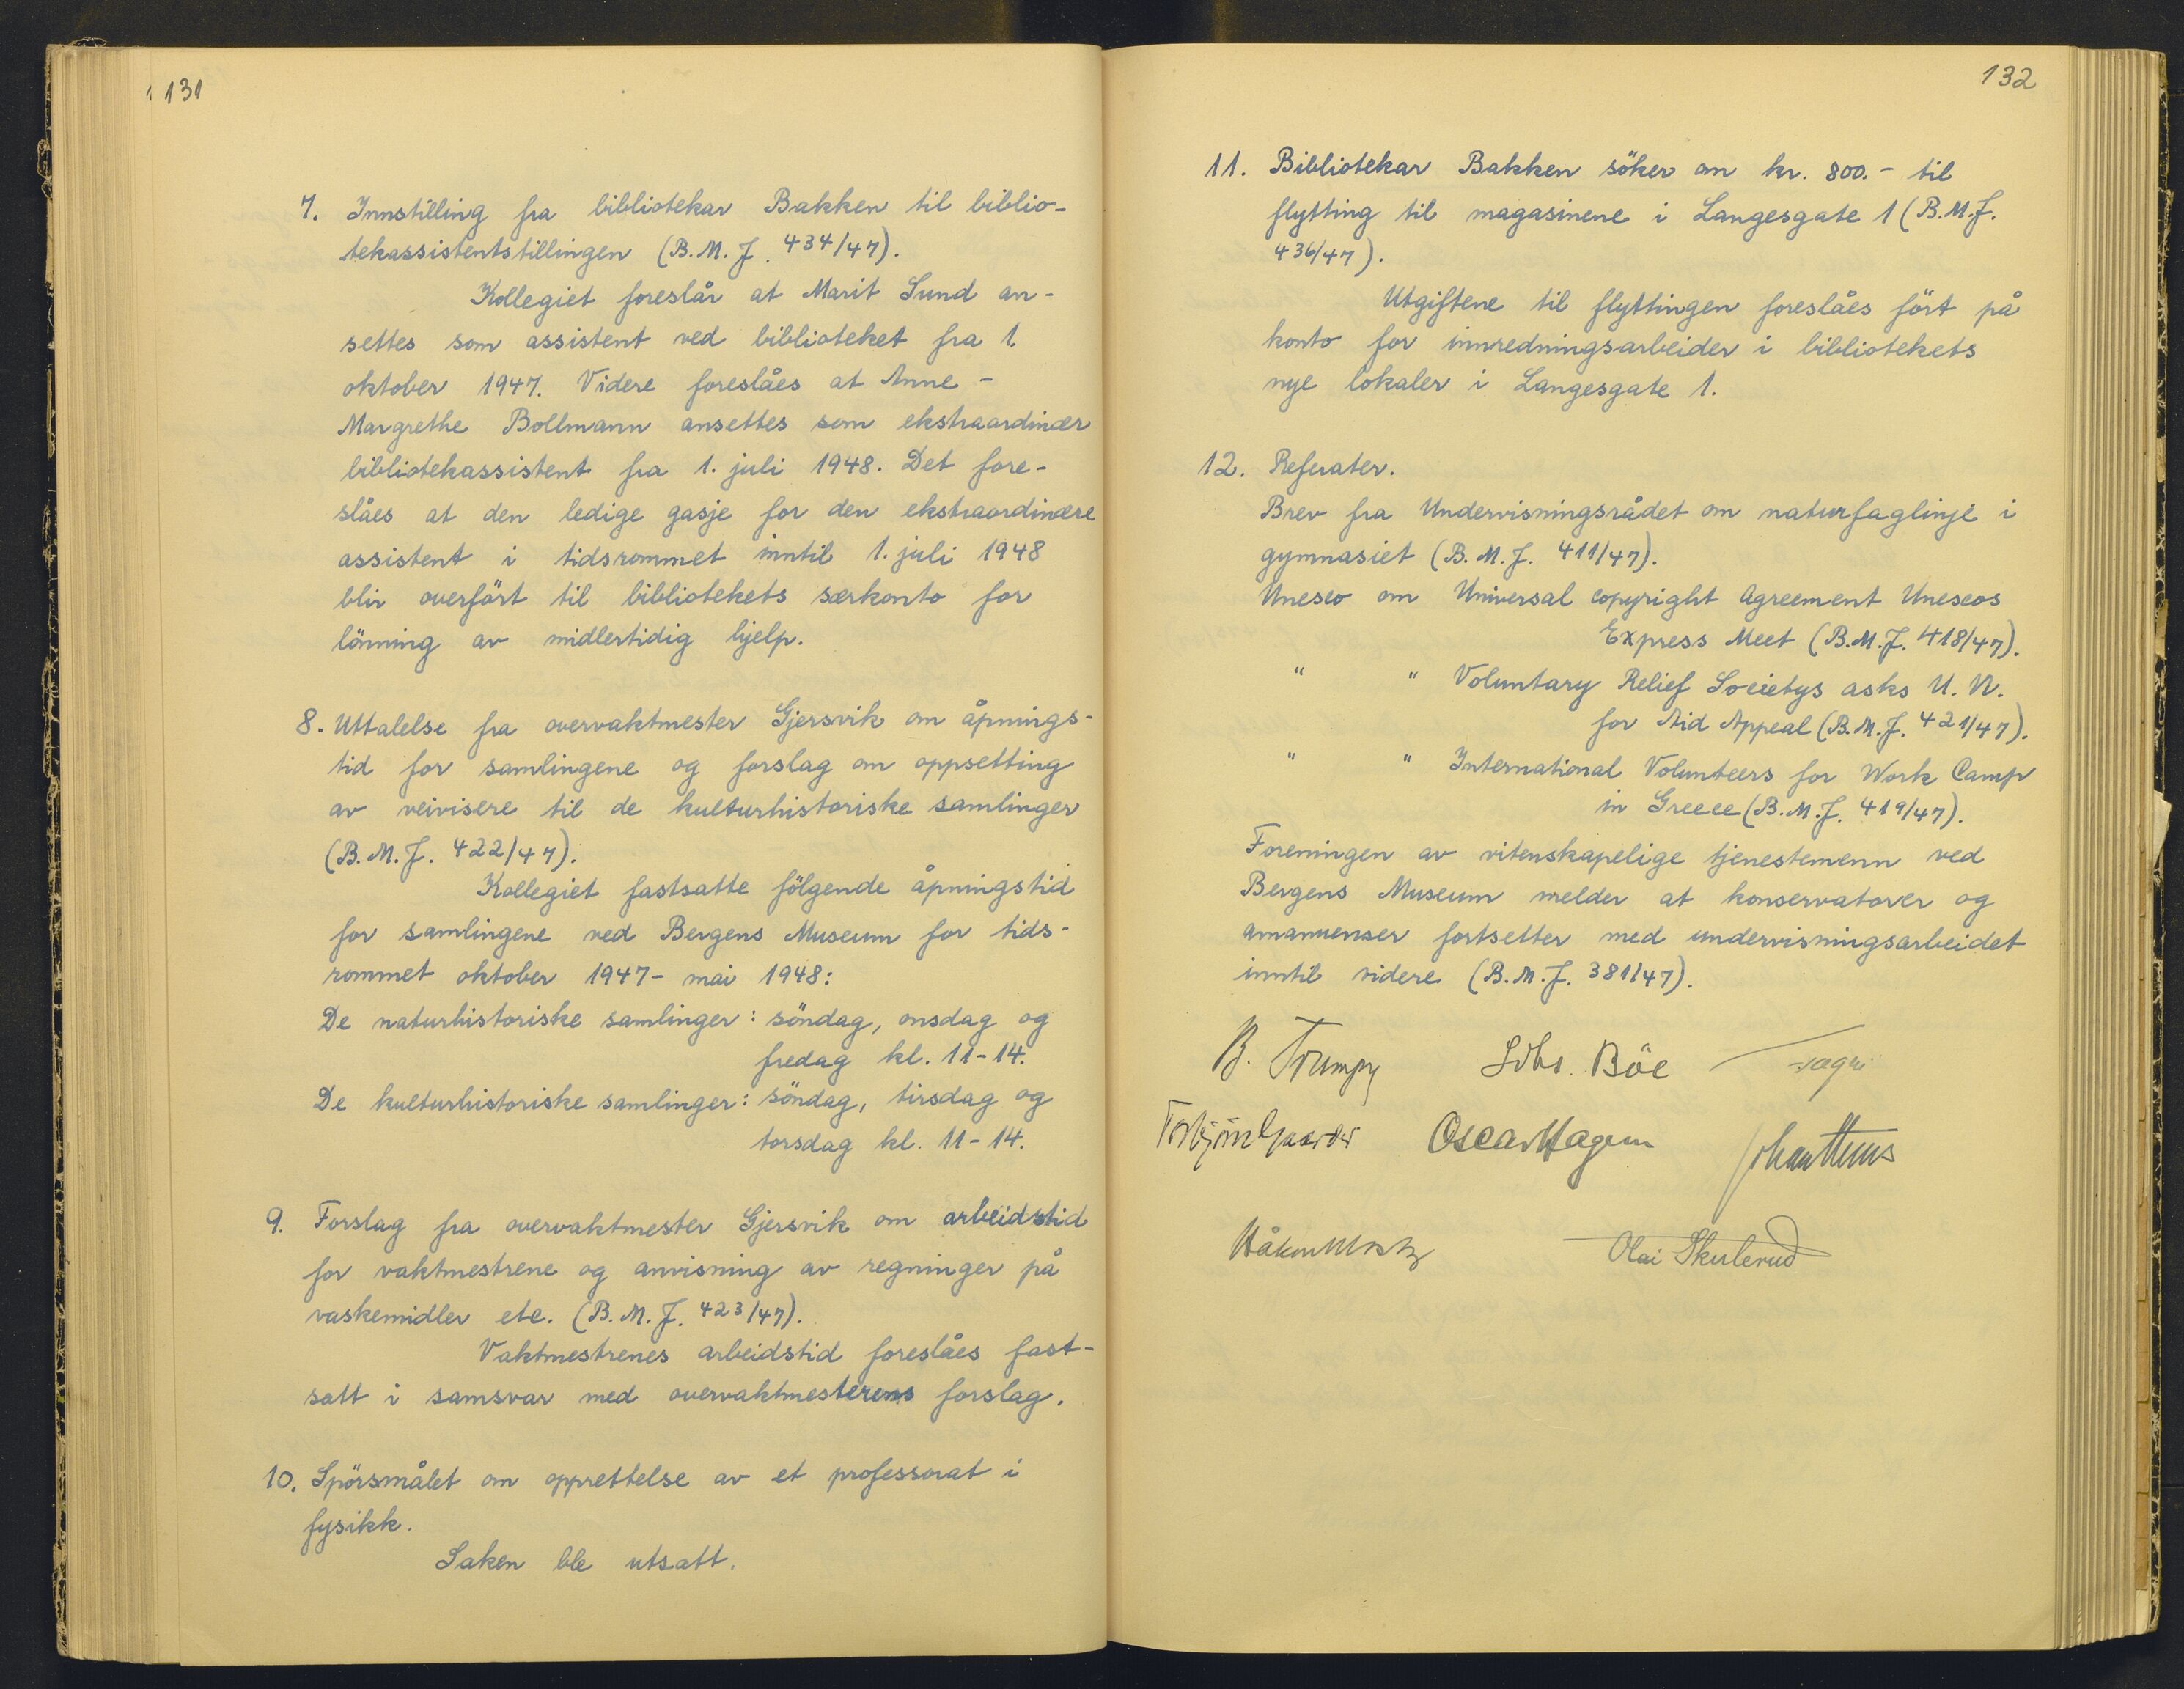 131
7. Innstilling fra bibliotekar Bakken til biblio-
tekassistentstillingen (B.M.J. 434/47).
Kollegiet foreslår at Marit Sund an-
settes som assistent ved biblioteket fra 1.
oktober 1947. Videre foreslåes at Anne-
Margrethe Bollmann ansettes som ekstraordinær
bibliotekassistent fra 1. juli 1948. Det fore-
slåes at den ledige gasje for den ekstraordinære
assistent i tidsrommet inntil 1. juli 1948
blir overfört til bibliotekets særkonto for
lönning av midlertidig hjelp.
8. Uttalelse fra overvaktmester Gjersvik om åpnings-
tid for samlingene og forslag om oppsetting
av veivisere til de kulturhistoriske samlinger
(B.M.J. 422/47).
Kollegiet fastsatte fölgende åpningstid
for samlingene ved Bergens Museum for tids-
rommet oktober 1947 - mai 1948:
De naturhistoriske samlinger: söndag, onsdag og
fredag kl. 11-14.
De kulturhistoriske samlinger: söndag, tirsdag og
torsdag kl. 11-14.
9. Forslag fra overvaktmester Gjersvik om arbeidstid
for vaktmestrene og anvisning av regninger på
vaskemidler etc. (B.M.J. 423/47).
Vaktmestrenes arbeidstid foreslåes fast-
satt i samsvar med overvaktmesterens forslag.
10. Spörsmålet om opprettelse av et professorat i
fysikk.
Saken ble utsatt.
132
11. Bibliotekar Bakken söker om kr. 800.- til
flytting til magasinene i Langesgate 1 (B.M.J.
436/47).
Utgiftene til flyttingen foreslåes fört på
konto for innredningsarbeider i bibliotekets
nye lokaler i Langesgate 1.
12. Referater.
Brev fra Undervisningsrådet om naturfaglinje i
gymnasiet (B.M.J. 411/47).
Unesco om Universal copyright Agreement Unescos
Express Meet (B.M.J. 418/47).
" " Voluntary Relief Societys asks U.N.
for Aid Appeal (B.M.J. 421/47).
" " International Volunteers for Work Camp
in Greece (B.M.J. 419/47).
Foreningen av vitenskapelige tjenestemenn ved
Bergens Museum melder at konservatorer og
amanuenser fortsetter med undervisningsarbeidet
inntil videre (B.M.J. 381/47).
B. Trumpy Johs. Böe
Torbjörn Gaarder Oscar Hagem
Håkon Olai Skulerud